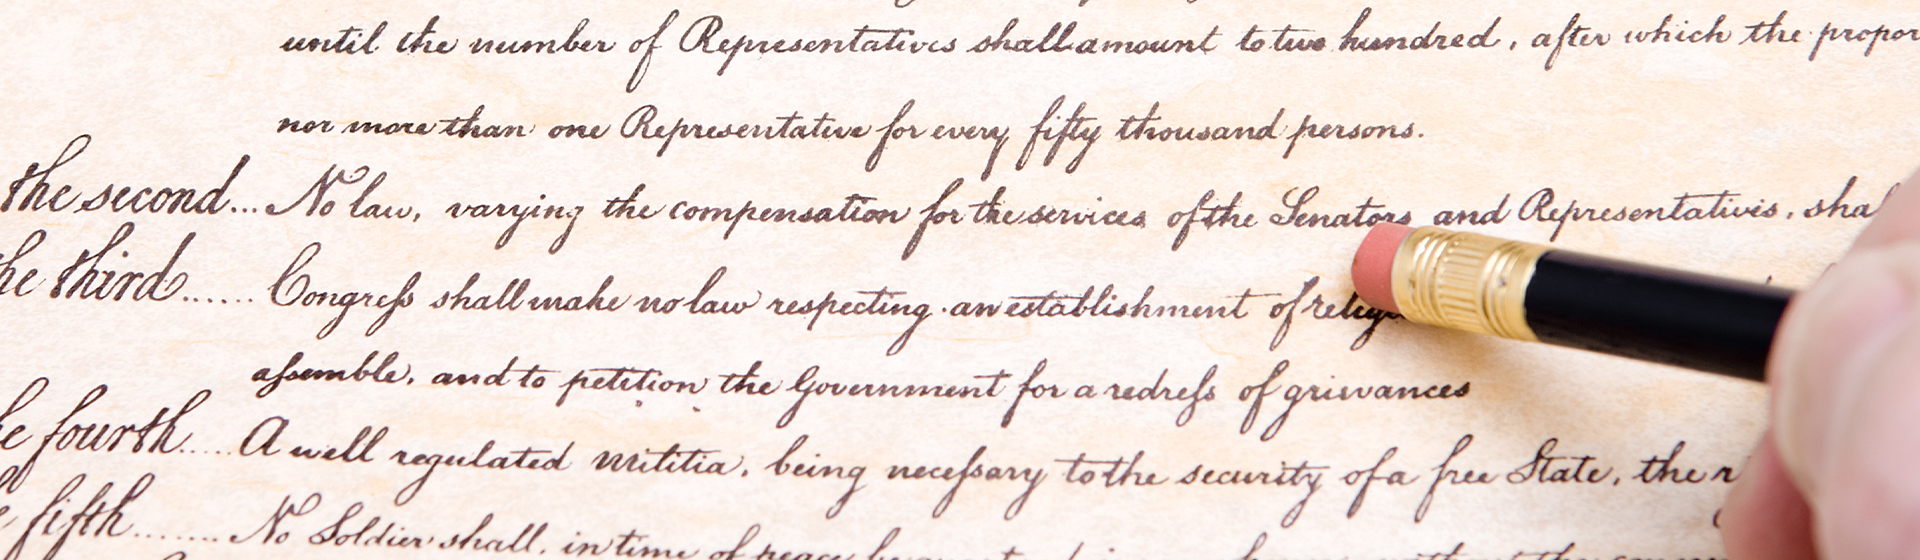 until the number of Representatives shall amount to two hundred, after which the propor
nor more than one Representative for every fifty thousand persons.
the second... No law, varying the compensation for the services of the Senators and Representatives, sha
he third...... Congreſs shall make no law respecting an establishment of relig
aſsemble, and to petition the Government for a redreſs of grievances
e fourth..... A well regulated Militia, being neceſsary to the security of a free State, the r
fifth....... No Soldier shall, in time of peace be